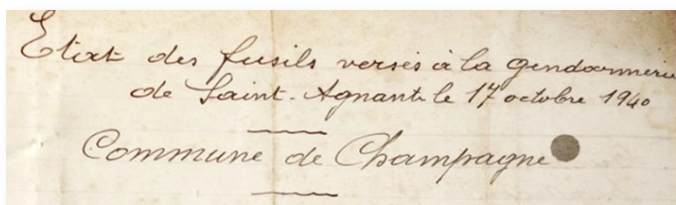 Etat des fusils versés à la gendarmerie
de Saint-Agnant le 17 octobre 1940
Commune de Champagne